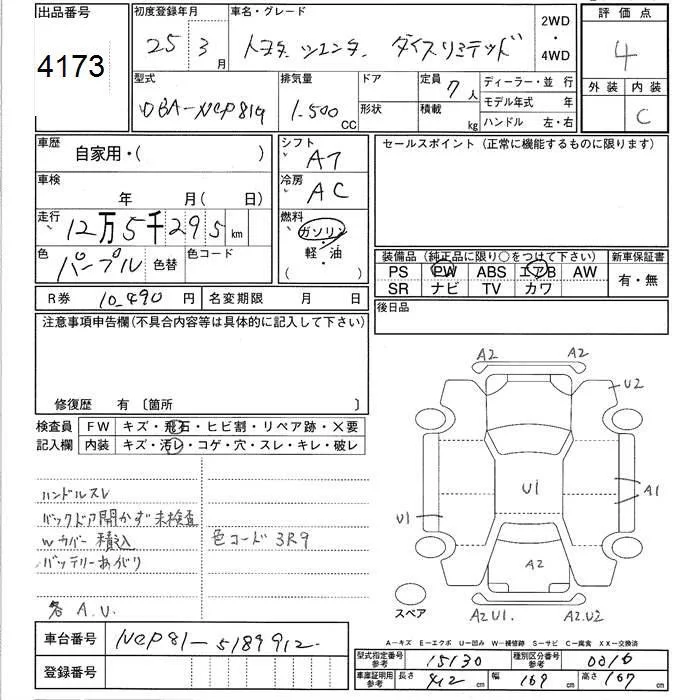 出品番号
4173
初度登録年月
25 3 月
車名・グレード
トヨタ シエンタ ダイスリミテッド
2WD
・
4WD
評価点
4
外装 内装
C
型式
DBA-NCP81G
排気量
1.500 CC
ドア
形状
定員 7 人
積載 kg
ディーラー・並 行
モデル年式 年
ハンドル 左・右
車歴
自家用・( )
シフト
AT
セールスポイント (正常に機能するものに限ります)
車検
年 月( 日)
冷房
AC
走行
12万5千295 km
燃料
ガソリン
・
軽・油
( )
色
パープル 色替
色コード
装備品 (純正品に限り○をつけて下さい)
新車保証書
PS PW ABS エアB AW
有・無
SR ナビ TV カワ
R券 10,490 円
名変期限 月 日
後日品
注意事項申告欄(不具合内容等は具体的に記入して下さい)
修復歴 有 〔箇所 〕
検査員 FW キズ・飛石・ヒビ割・リペア跡・X要
記入欄 内装 キズ・汚レ・コゲ・穴・スレ・キレ・破レ
ハンドルスレ
バックドア開かず未検査
Wカバー積込
色コード 3R9
バッテリーあがり
各 A.U.
A2 A2
U2
U1
A1
U1
A2
スペア
A2U1. A2.U2
A-キズ E-エクボ U-凹み W-補修跡 S-サビ C-腐食 XX-交換済
車台番号 NCP81-5189912
登録番号
型式指定番号 参考 15130
種別区分番号 参考 0016
車庫証明用 参考 長さ 412 cm 幅 169 cm 高さ 167 cm